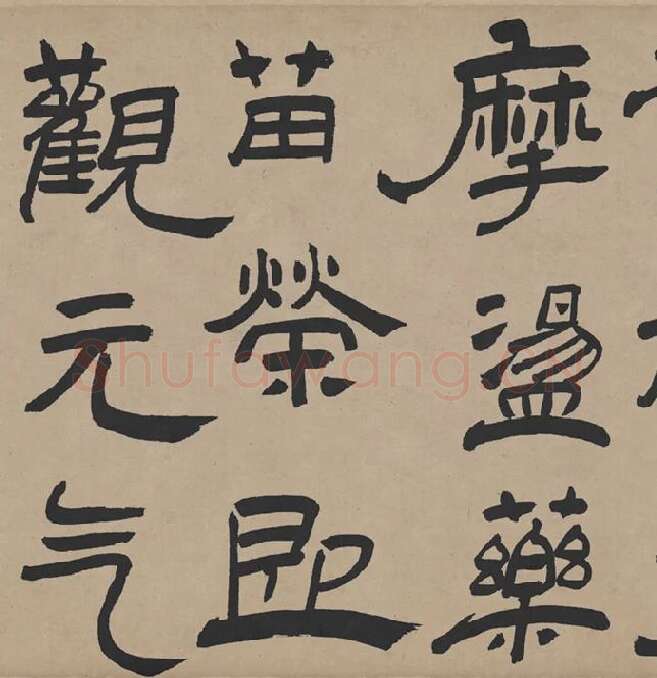 摩盪藥
苗榮即
觀元气
Shufawang.CN